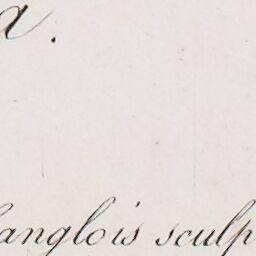 a.
anglois sculp